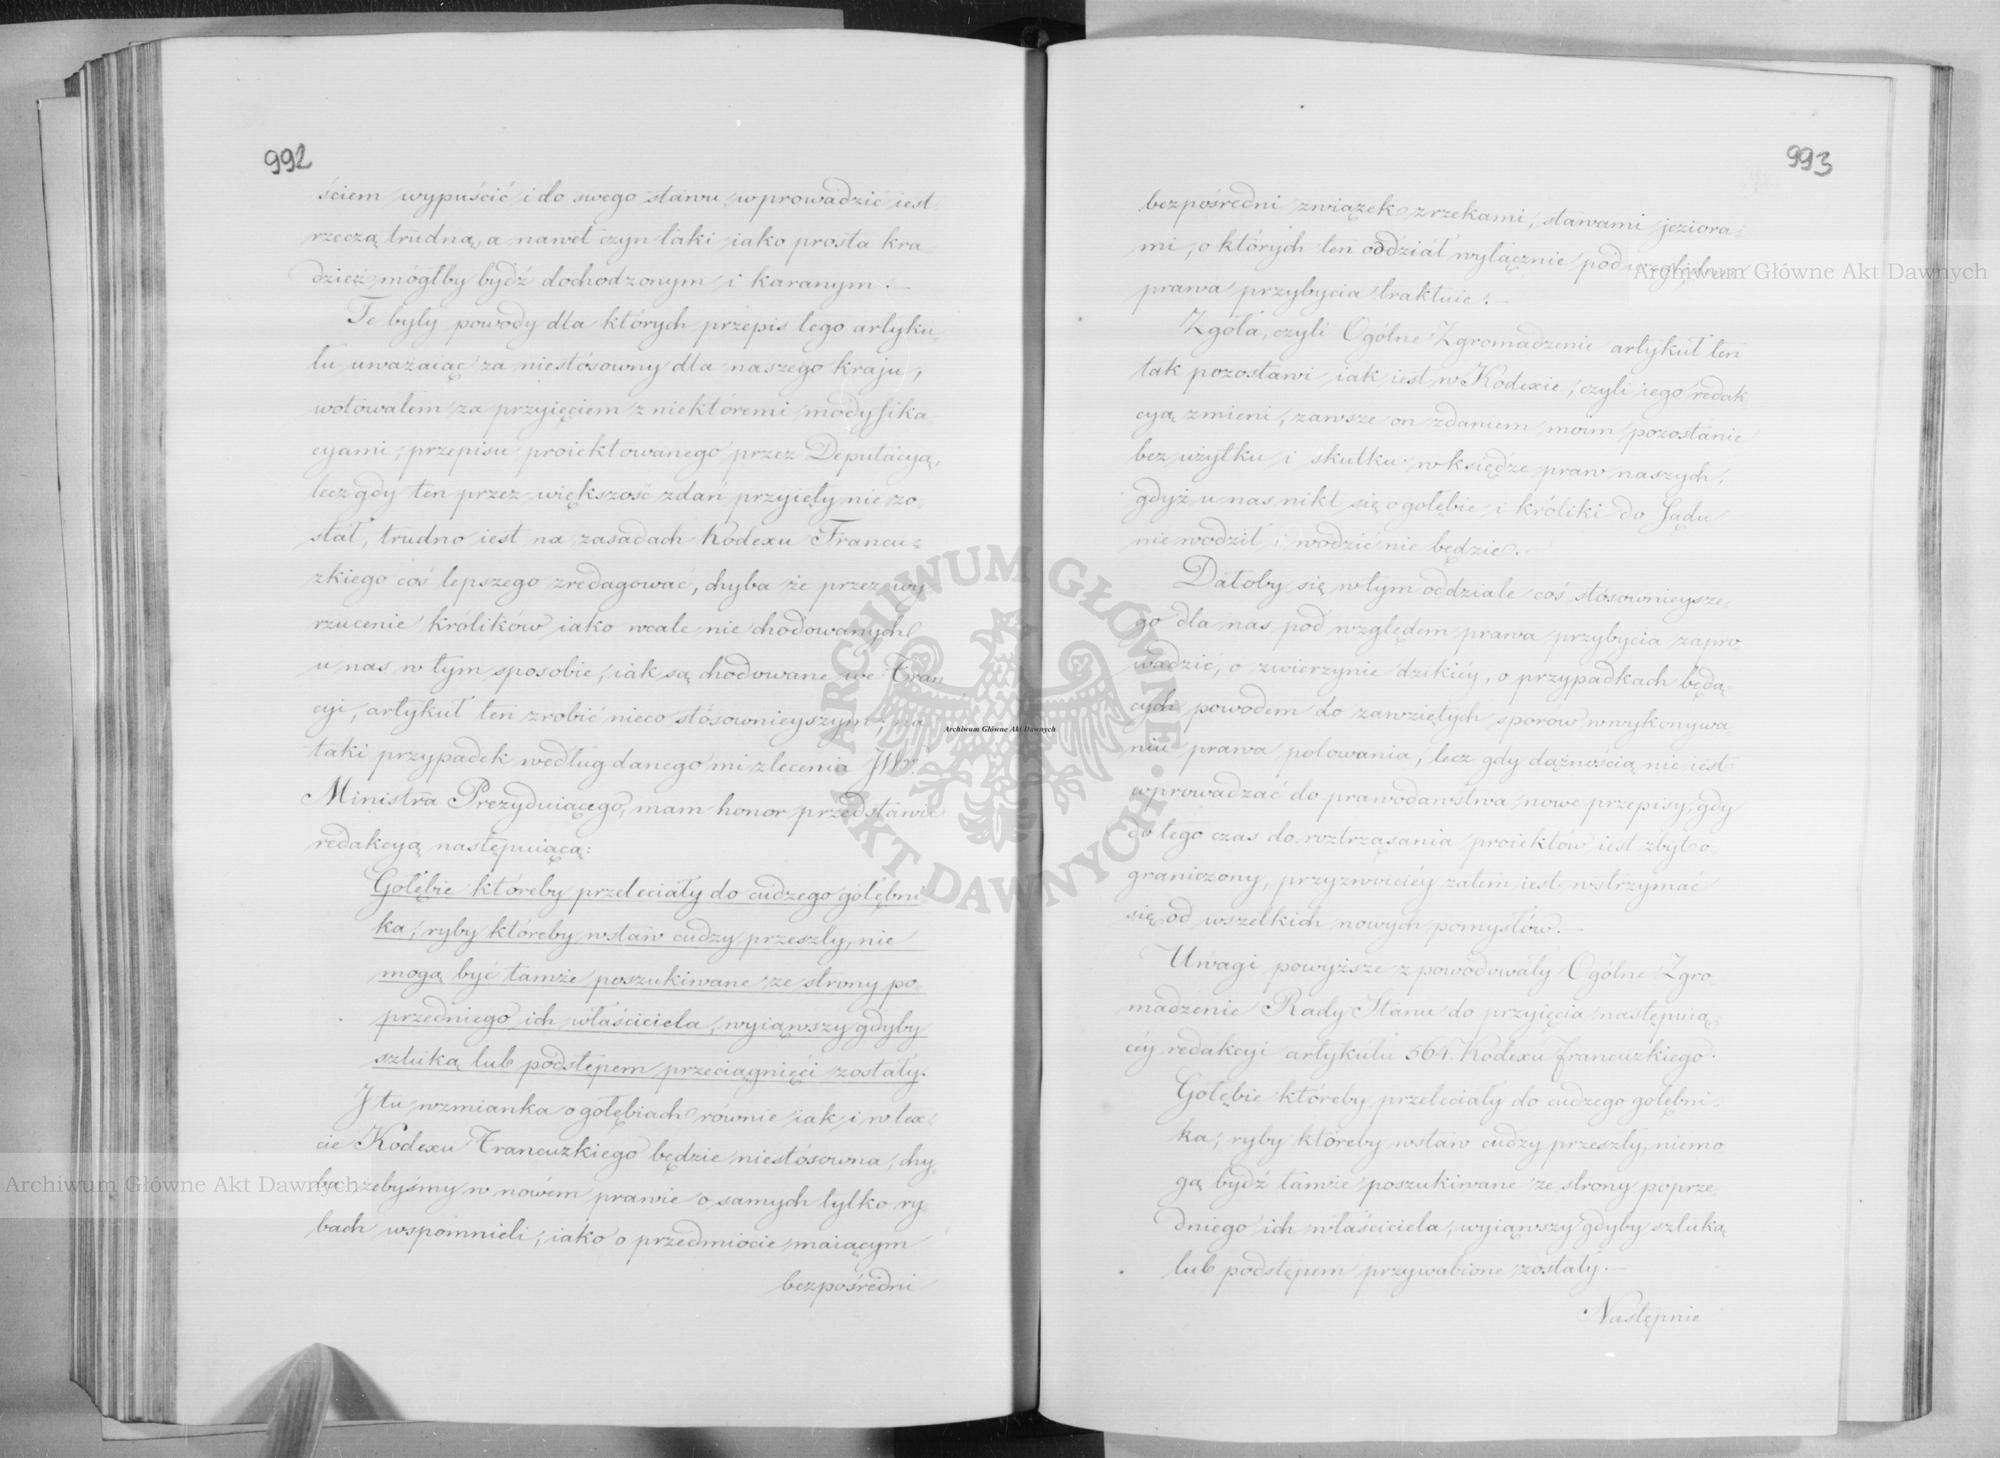 992
ściem wypuścić i do swego stawu wprowadzić iest
rzeczą trudną, a nawet czyn taki iako prosta kra-
dzież mógłby bydź dochodzonym i karanym.—
Te były powody dla których przepis tego artyku-
łu uważaiąc za niestósowny dla naszego kraju,
wotowałem za przyięciem z niektóremi modyfika-
cyami, przepisu proiektowanego przez Deputacyą,
lecz gdy ten przez większość zdań przyięty nie zo-
stał, trudno iest na zasadach Kodexu Francu-
zkiego coś lepszego zredagować, chyba że przez wy-
rzucenie królików iako wcale nie chodowanych
u nas w tym sposobie, iak są chodowane we Fran
cyi, artykuł ten zrobić nieco stósownieyszym, na
taki przypadek według danego mi zlecenia JWr.
Ministra Prezyduiącego, mam honor przedstawić
redakcyą następuiącą:
Gołębie któreby przeleciały do cudzego gołębni-
ka, ryby któreby w staw cudzy przeszły, nie
mogą być tamże poszukiwane ze strony po-
przedniego ich właściciela, wyiąwszy gdyby
sztuką lub podstępem przeciągnięci zostały.
J tu wzmianka o gołębiach równie iak i w tex-
cie Kodexu Francuzkiego będzie niestósowna, chy-
ba żebyśmy w nowém prawie o samych tylko ry-
bach wspomnieli, iako o przedmiocie maiącym
bezpośredni
993
bezpośredni związek z rzekami, stawami jeziora-
mi, o których ten oddział wyłącznie pod względem
prawa przybycia traktuie.—
Zgoła, czyli Ogólne Zgromadzenie artykuł ten
tak pozostawi iak iest w Kodexie, czyli iego redak
cyą zmieni, zawsze on zdaniem moim pozostanie
bez użytku i skutku w księdze praw naszych,
gdyż u nas nikt się o gołębie i króliki do Sądu
nie wodził i wodzić nie będzie.—
Dałoby się w tym oddziale coś stósownieysze-
go dla nas pod względem prawa przybycia zapro-
wadzić, o zwierzynie dzikiéy, o przypadkach będą-
cych powodem do zawziętych sporów w wykonywa
niu prawa polowania, lecz gdy dążnością nie iest
wprowadzać do prawodawstwa nowe przepisy, gdy
do tego czas do roztrząsania proiektów iest zbyt o-
graniczony, przyzwoiciéy zatem iest wstrzymać
się od wszelkich nowych pomysłów.—
Uwagi powyższe z powodowały Ogólne Zgro-
madzenie Rady Stanu do przyięcia następuią-
céy redakcyi artykułu 564. Kodexu francuzkiego.
Gołębie któreby przeleciały do cudzego gołębni-
ka, ryby któreby w staw cudzy przeszły, niemo
gą bydź tamże poszukiwane ze strony poprze-
dniego ich właściciela, wyiąwszy gdyby sztuką
lub podstępem przywabione zostały.—
Następnie
Archiwum Główne Akt Dawnych
Archiwum Główne Akt Dawnych
Archiwum Główne Akt Dawnych
ARCHIWUM GŁÓWNE AKT DAWNYCH